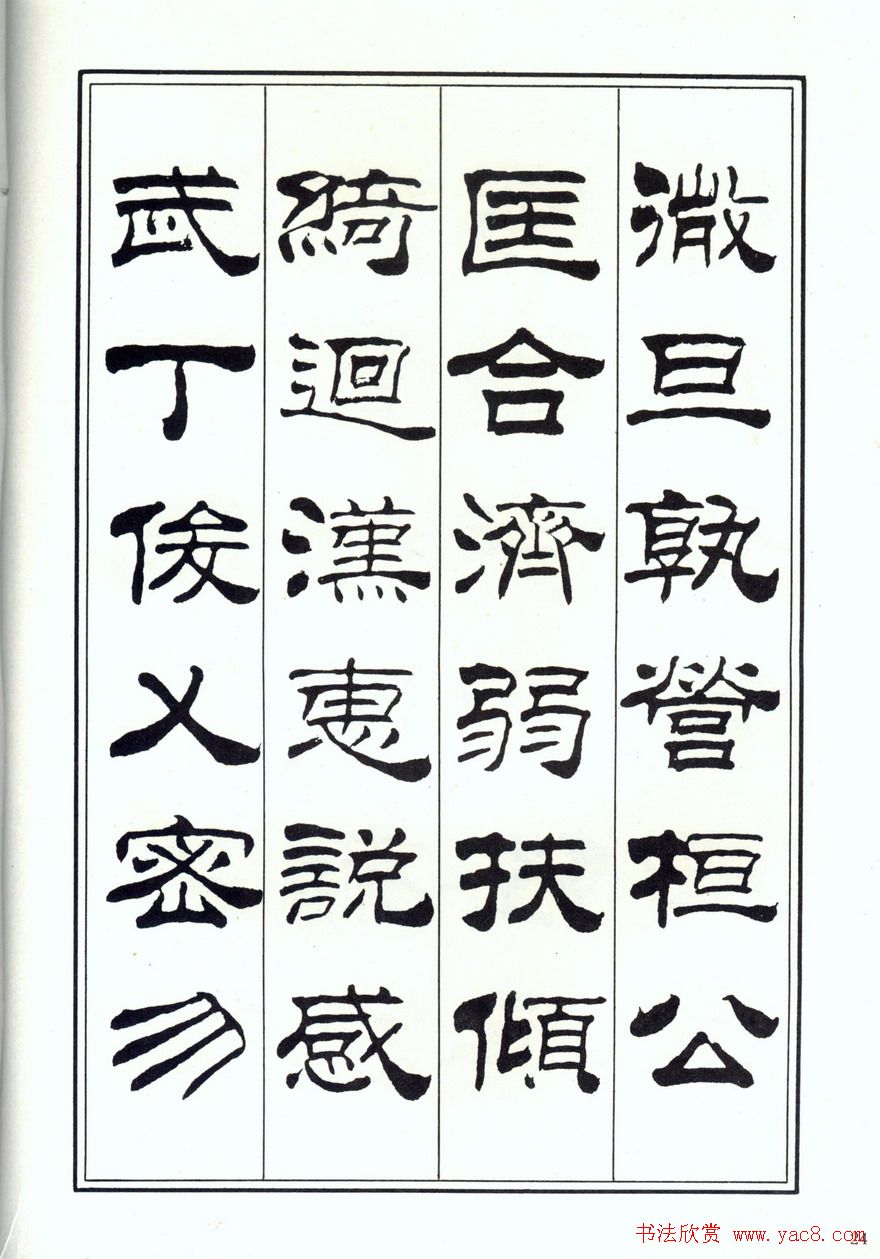 微旦孰營桓公
匡合濟弱扶傾
綺迴漢惠說感
武丁俊乂密勿
书法欣赏 www.yac8.com
24